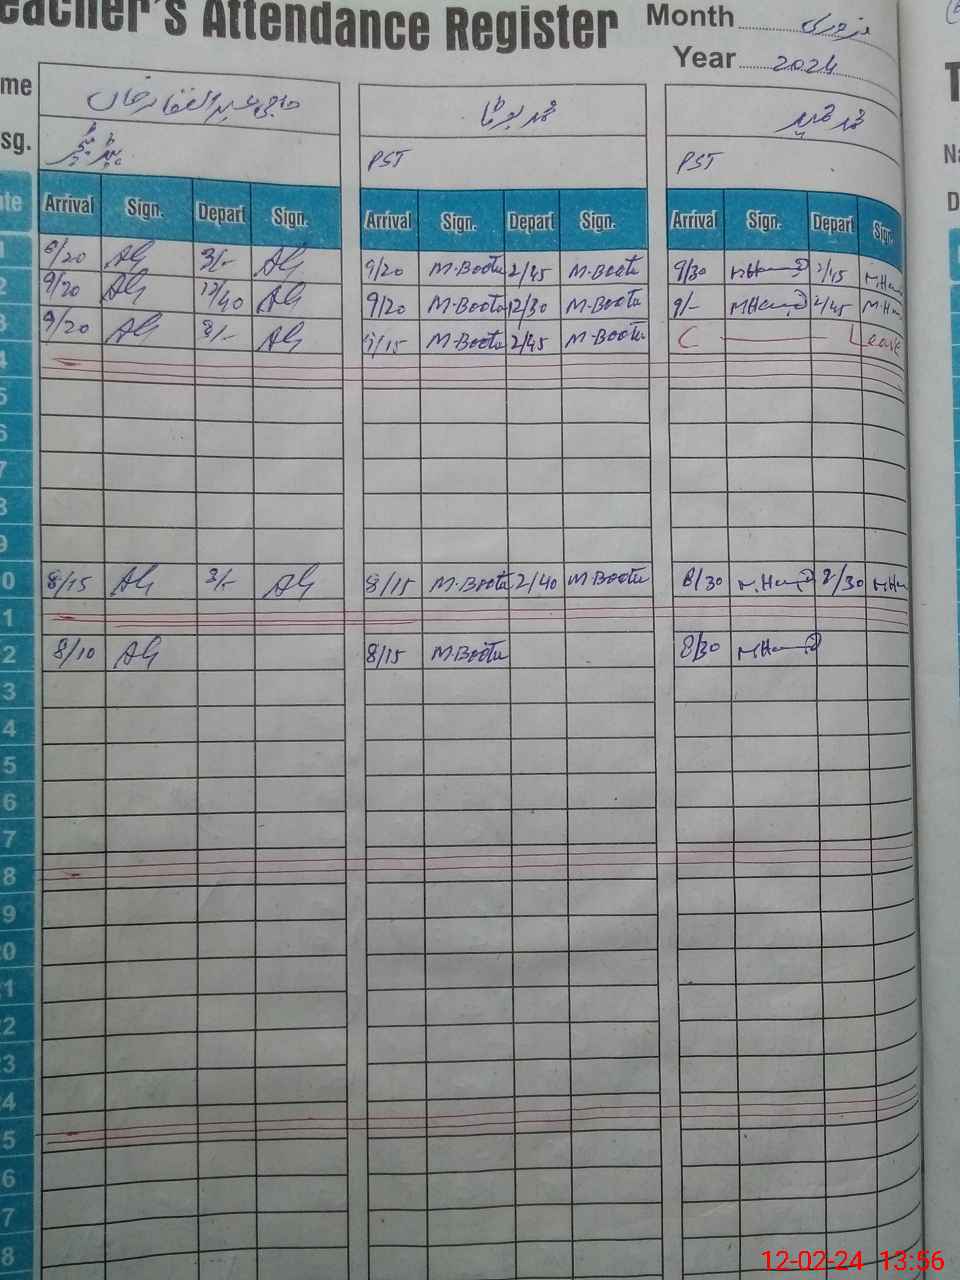 eacher's Attendance Register Month فروری
Year 2024
me حاجی عبدالغفار خان محمد بوٹا محمد حمید
sg. PST PST
te Arrival Sign. Depart Sign. Arrival Sign. Depart Sign. Arrival Sign. Depart Sign.
1 8/20 AG 3/- AG 9/20 M.Boota 2/45 M.Boota 9/30 M.Hameed 2/45 M.Ham
2 9/20 AG 12/40 AG 9/20 M.Boota 12/30 M.Boota 9/- M.Hameed 2/45 M.Ham
3 9/20 AG 3/- AG 9/15 M.Boota 2/45 M.Boota C Leave
4
5
6
7
8
9
0 8/15 AG 3/- AG 8/15 M.Boota 2/40 M.Boota 8/30 M.Hameed 2/30 M.Ham
1
2 8/10 AG 8/15 M.Boota 8/30 M.Hameed
3
4
5
6
7
8
9
20
21
22
23
24
25
6
7
8
12-02-24 13:56